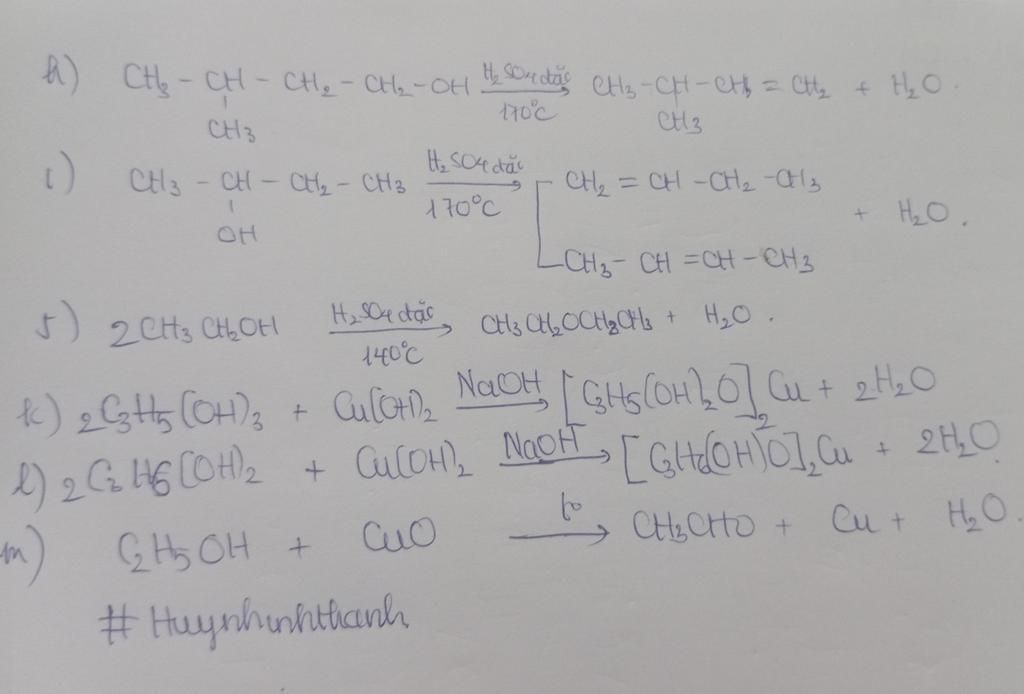 h) CH3 - CH - CH2 - CH2 - OH H2SO4 đặc 170°C → CH3 - CH - CH = CH2 + H2O.
CH3 CH3
i) CH3 - CH - CH2 - CH3 H2SO4 đặc 170°C → CH2 = CH - CH2 - CH3
OH + H2O.
CH3 - CH = CH - CH3
5) 2CH3CH2OH H2SO4 đặc 140°C → CH3CH2OCH2CH3 + H2O.
k) 2C3H5(OH)3 + Cu(OH)2 NaOH → [C3H5(OH)2O]2Cu + 2H2O
l) 2C3H6(OH)2 + Cu(OH)2 NaOH → [C3H6(OH)O]2Cu + 2H2O
m) C2H5OH + CuO t° → CH3CHO + Cu + H2O.
# Huynhinhthanh